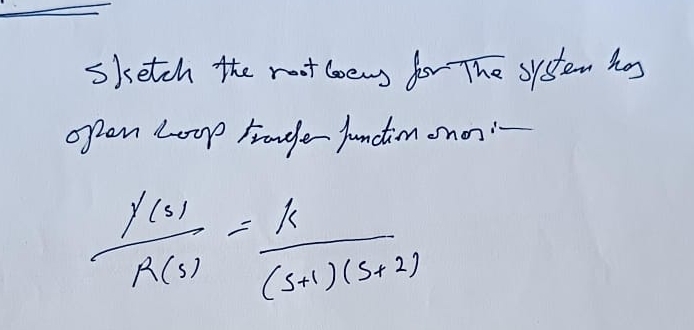 Sketch the root locus for The system has
open loop transfer function
Y(s)/R(s) = k/((s+1)(s+2))